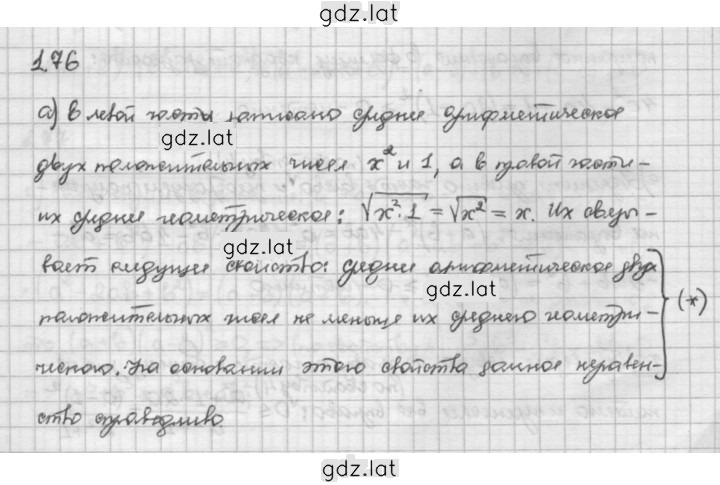 gdz.lat
1.76
а) В левой части записано среднее арифметическое
gdz.lat
двух положительных чисел x² и 1, а в правой части –
их среднее геометрическое: √x²·1 = √x² = x. Их связы-
gdz.lat
вает следующее свойство: среднее арифметическое двух
gdz.lat
положительных чисел не меньше их среднего геометри-
(*)
ческого. На основании этого свойства данное неравен-
ство справедливо
gdz.lat